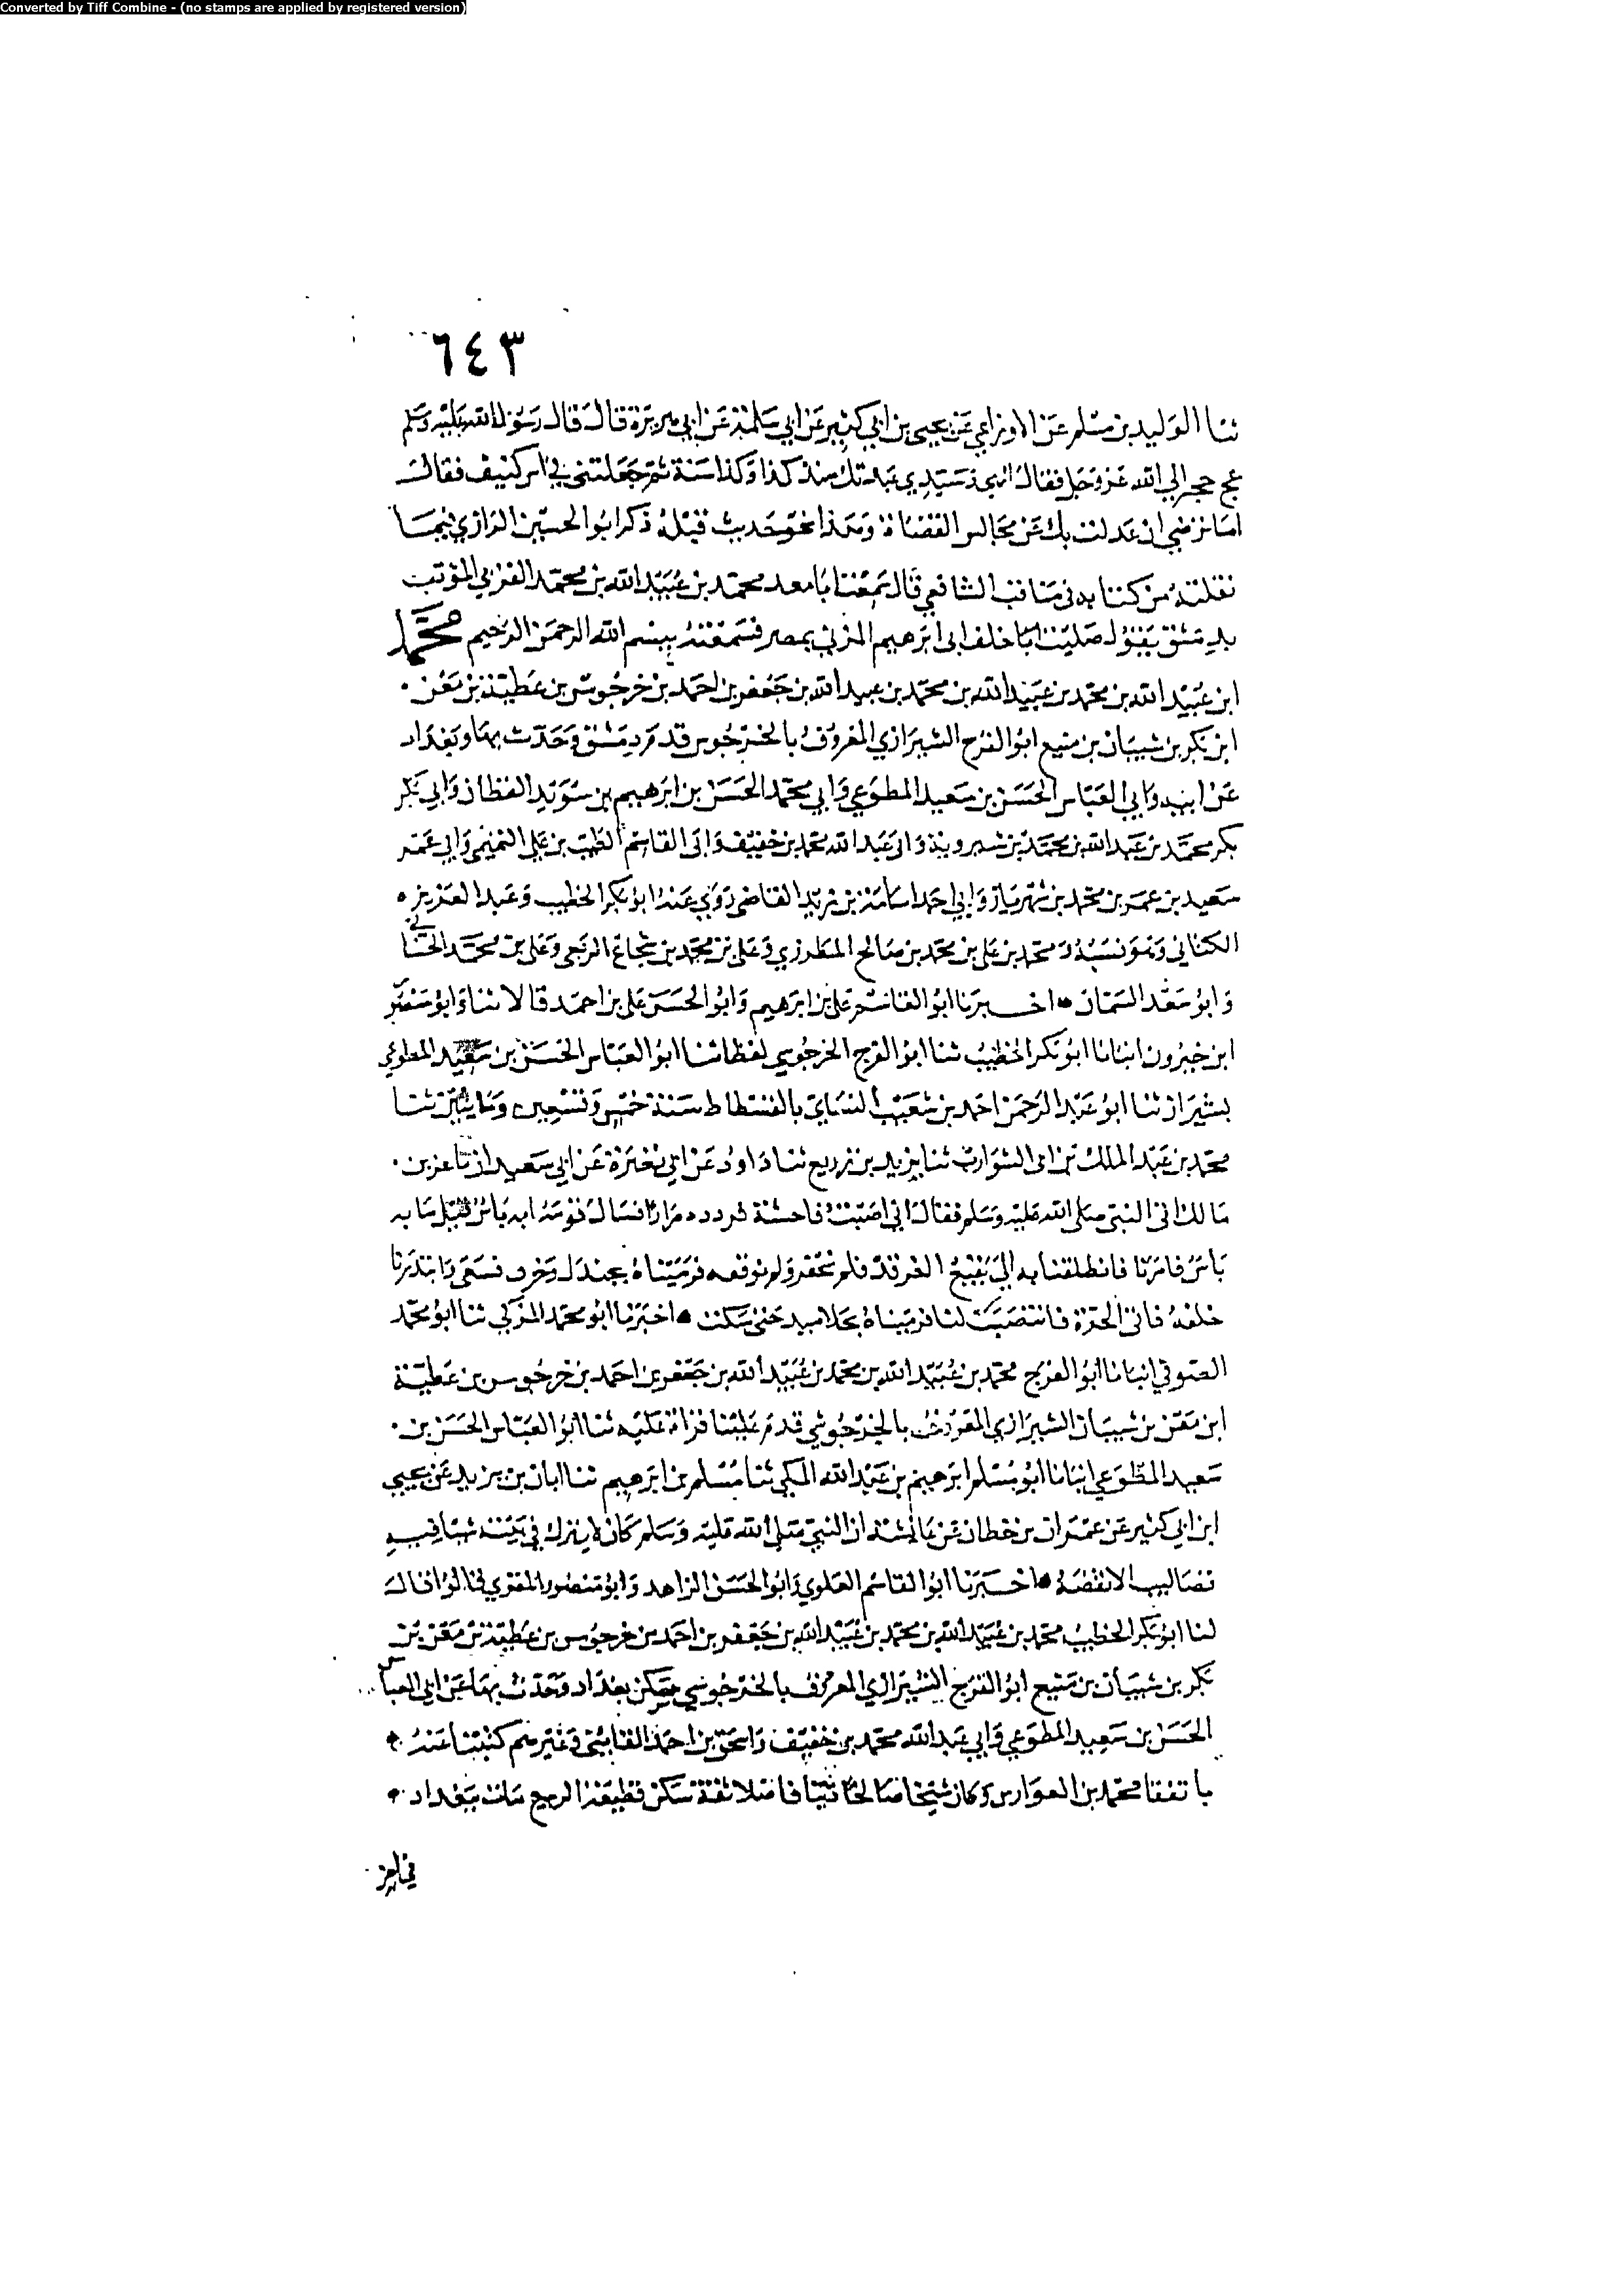 Converted by Tiff Combine - (no stamps are applied by registered version)
٦٤٣
ثنا الوليد بن مسلم عن الاوزاعي عن يحيى بن ابي كثير عن ابي سلمة عن ابي هريرة قال قال رسول الله عليه وسلم
عج حجر الى الله عز وجل فقال الهي وسيدي عبدتك منذ كذا وكذا سنة ثم جعلتني في اس كنيف فقال
اما ترضى ان عدلت بك عن مجالس القضاة وهذا نحو حديث قبله ذكر ابو الحسين الرازي فيما
نقلته من كتابه في مناقب الشافعي قال سمعنا ابا معد محمد بن عبيد الله بن محمد القرني المؤدب
بدمشق يقول صليت انا خلف ابي ابرهيم المزني بمصر فسمعته ببسم الله الرحمن الرحيم محمد
ابن عبيد الله بن محمد بن عبيد الله بن محمد بن عبيد الله بن جعفر بن احمد بن خرجوش بن عطية بن معن
ابن بكر بن شيبان بن منيع ابو الفرج الشيرازي المعروف بالخرجوشي قدم دمشق وحدث بها وبغداد
عن ابيه وابي العباس الحسن بن سعيد المطوعي وابي محمد الحسن بن ابرهيم بن سويد القطان وابي بكر
بكر محمد بن عبد الله بن محمد بن شيرويه وابي عبد الله محمد بن خفيف وابي القاسم الطيب بن علي التميمي وابي عمر
سعيد بن عمر بن محمد بن شهريار وابي احمد اسامة بن زيد القاضي روى عنه ابو بكر الخطيب وعبد العزيز
الكتاني وهو نسبه ومحمد بن علي بن محمد بن صالح المطرزي وعلي بن محمد بن شجاع الربعي وعلي بن محمد الحنائي
وابو سعد السمان اخبرنا ابو القاسم علي بن ابرهيم وابو الحسن علي بن احمد قالا ثنا وابو منصور
ابن خيرون انبانا ابو بكر الخطيب ثنا ابو الفرج الخرجوشي لفظا ثنا ابو العباس الحسن بن سعيد المطوعي
بشيراز ثنا ابو عبد الرحمن احمد بن شعيب النسايي بالفسطاط سنة خمس وتسعين ومايتين ثنا
محمد بن عبد الملك بن ابي الشوارب ثنا يزيد بن زريع ثنا داود عن ابي نضرة عن ابي سعيد ان ماعز بن
مالك اتى النبي صلى الله عليه وسلم فقال اني اصبت فاحشة فردده مرارا فسال قومه ابه باس فقيل ما به
باس فامرنا فانطلقنا به الى بقيع الغرقد فلم نحفر ولم نوثقه فرميناه بجندل وخزف فسعى وابتدرنا
خلفه فاتى الحرة فانتصب لنا فرميناه بجلاميد حتى سكت اخبرنا ابو محمد المزكي ثنا ابو محمد
الصوفي انبانا ابو الفرج محمد بن عبيد الله بن محمد بن عبيد الله بن جعفر بن احمد بن خرجوس بن عطية
ابن معن بن شيبان الشيرازي المعروف بالخرجوشي قدم علينا قراة عليه ثنا ابو العباس الحسن بن
سعيد المطوعي انبانا ابو مسلم ابرهيم بن عبد الله المكي ثنا مسلم بن ابرهيم ثنا ابان بن يزيد عن يحيى
ابن ابي كثير عن عمران بن حطان عن عائشة ان النبي صلى الله عليه وسلم كان لا يترك في بيته شيا فيه
تصاليب الا نقضه اخبرنا ابو القاسم العلوي وابو الحسن الزاهد وابو منصور المقري قالوا قال
لنا ابو بكر الخطيب محمد بن عبيد الله بن محمد بن عبيد الله بن جعفر بن احمد بن خرجوس بن عطية بن معن بن
بكر بن شيبان بن منيع ابو الفرج الشيرازي المعروف بالخرجوشي سكن بغداد وحدث بها عن ابي العباس
الحسن بن سعيد المطوعي وابي عبد الله محمد بن خفيف واسحق بن احمد القايني وغيرهم كتبنا عنه
با تفقا محمد بن الفوارس وكان شيخا صالحا دينا فاضلا ثقة سكن قطيعة الربيع مات ببغداد